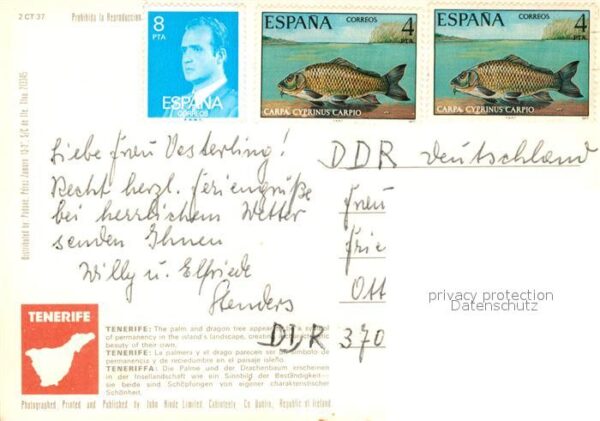 2 CT 37
Prohibida la Reproduccion
8
PTA
ESPAÑA
CORREOS
ESPAÑA CORREOS 4
PTA
CARPA CYPRINUS CARPIO
ESPAÑA CORREOS 4
PTA
CARPA CYPRINUS CARPIO
Liebe Frau Vesterling!
Recht herzl. Feriengrüße
bei herrlichem Wetter
senden Ihnen
Willy u. Elfriede
Stenders
DDR Deutschland
Frau
Frie
Ott
DDR 370
privacy protection
Datenschutz
TENERIFE
TENERIFE: The palm and dragon tree appear symbol
of permanency in the island's landscape, creating
beauty of their own.
TENERIFE: La palmera y el drago parecen ser símbolo de
permanencia y de reciedumbre en el paisaje isleño.
TENERIFFA: Die Palme und der Drachenbaum erscheinen
in der Insellandschaft wie ein Sinnbild der Beständigkeit—
sie beide sind Schöpfungen von eigener charakteristischer
Schönheit.
Photographed, Printed and Published by John Hinde Limited, Cabinteely, Co Dublin, Republic of Ireland.